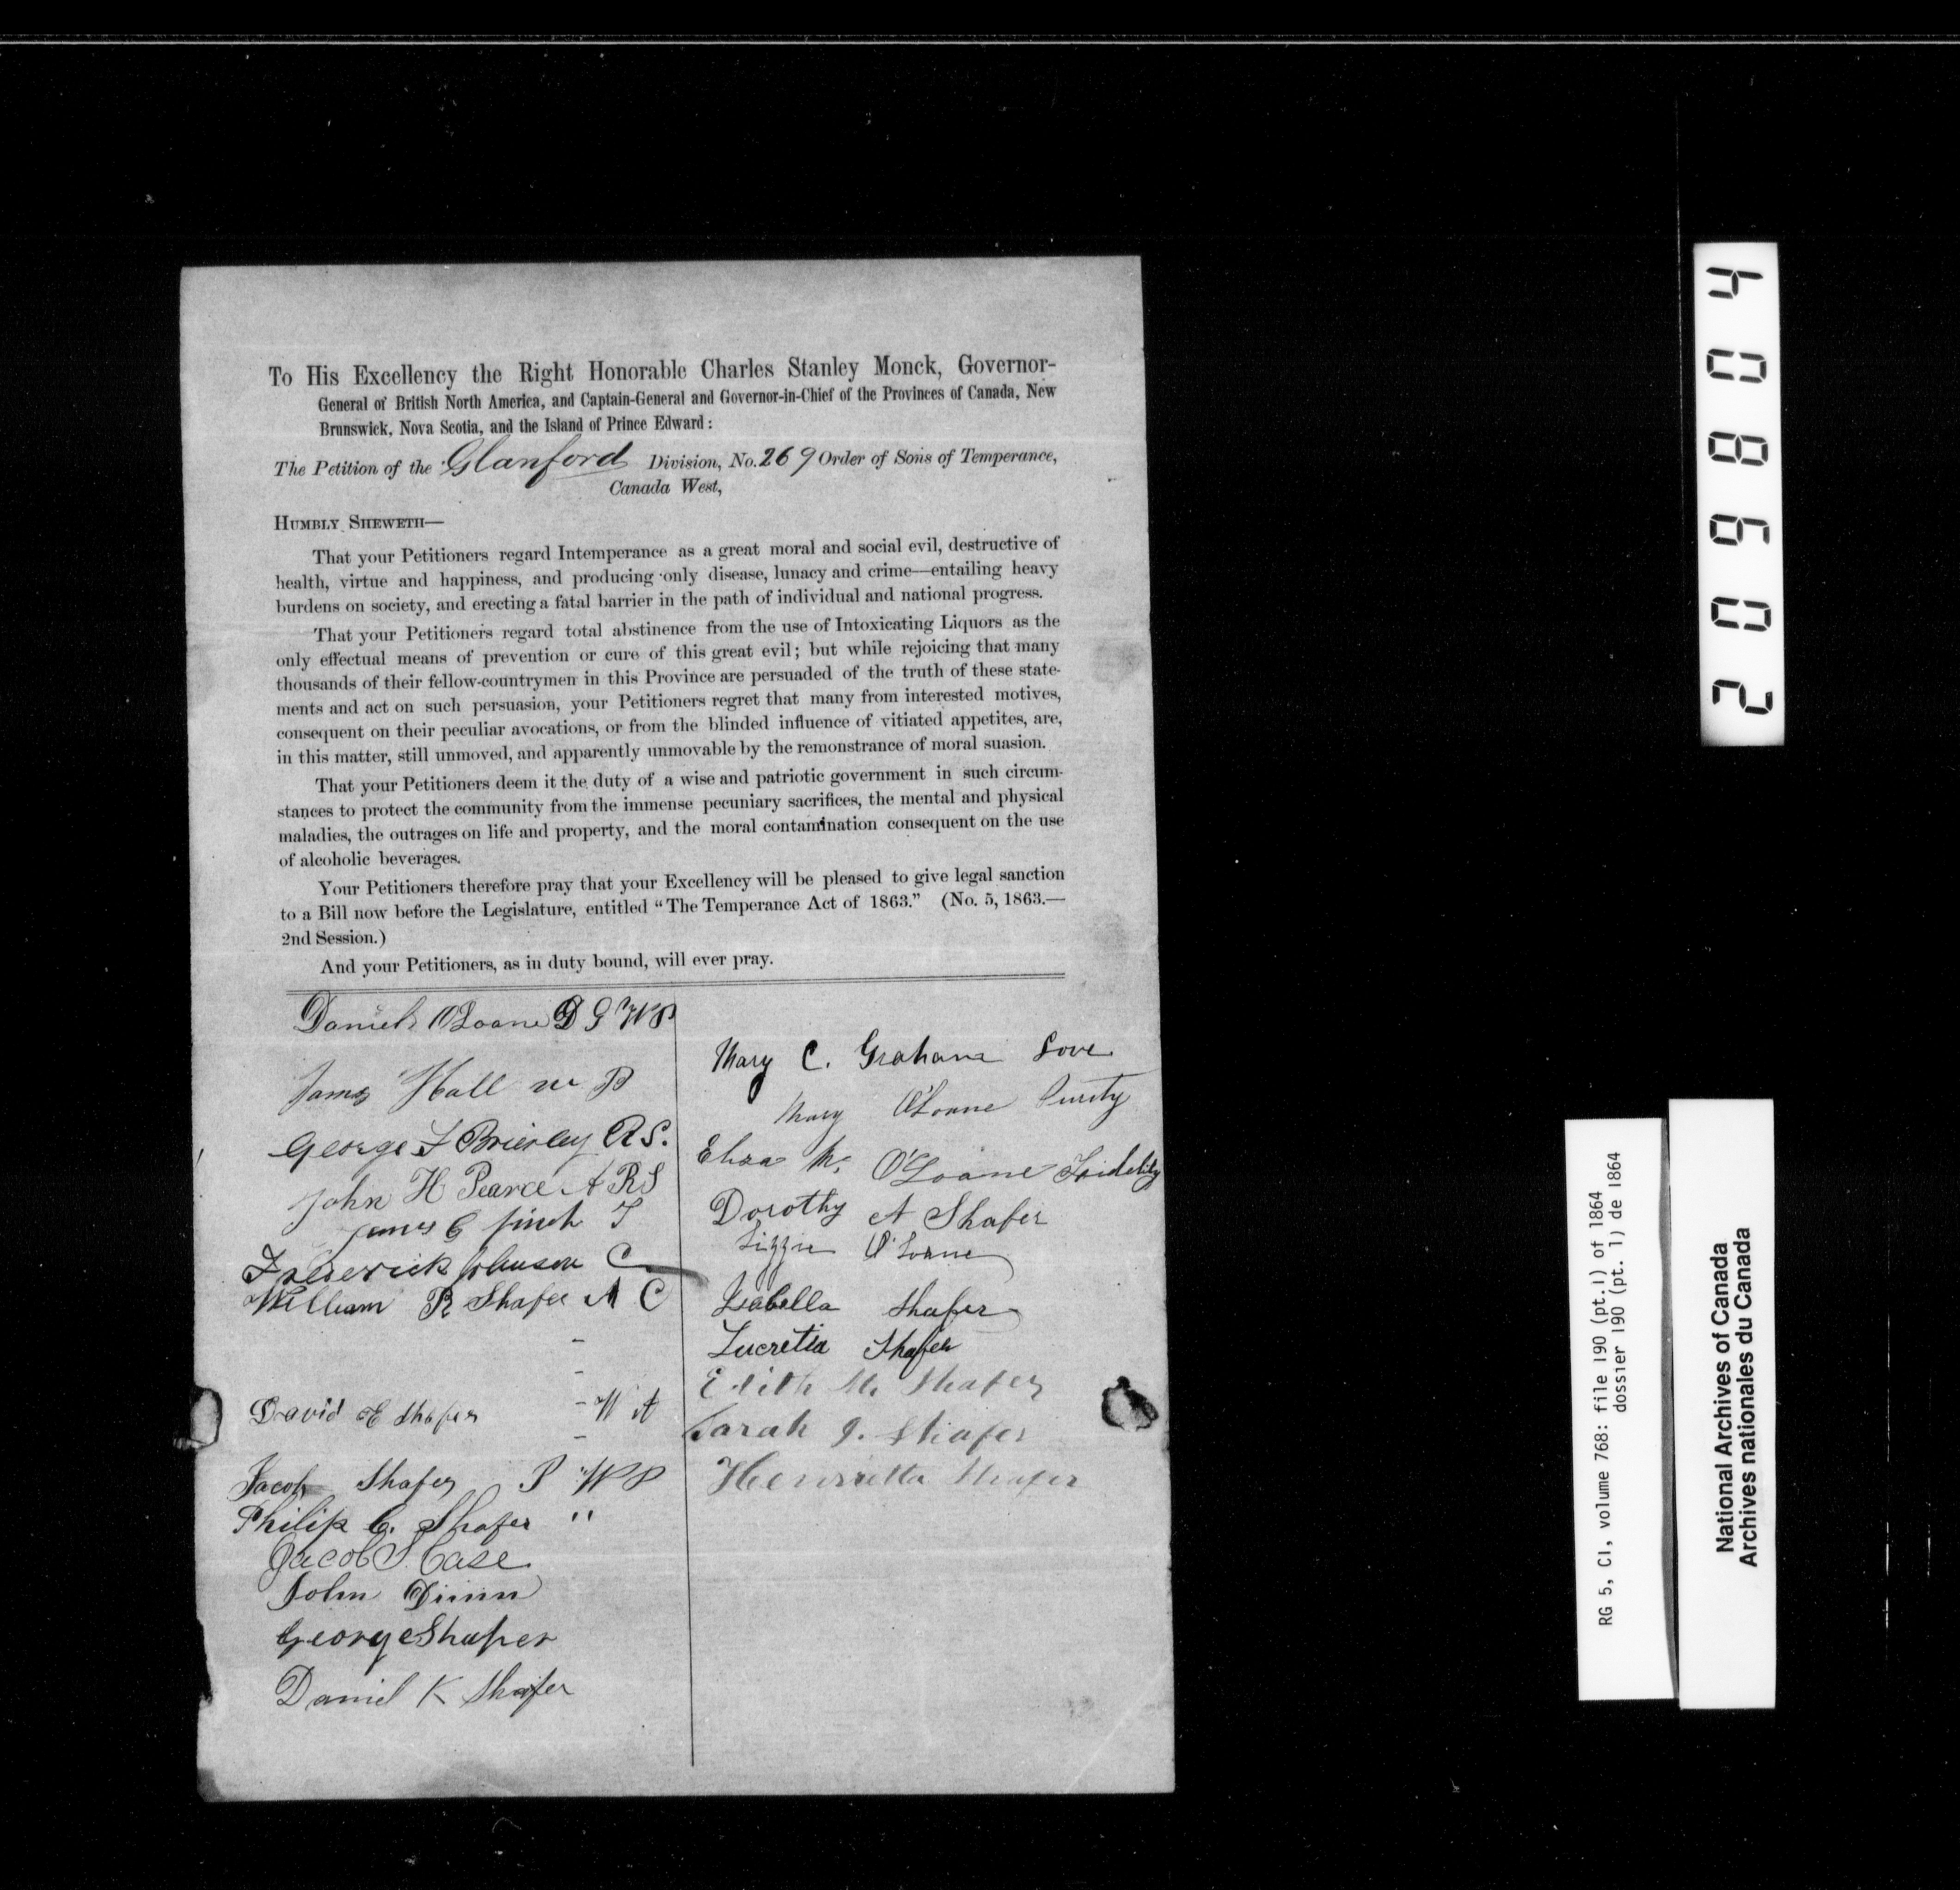 To His Excellency the Right Honorable Charles Stanley Monck, Governor-
General of British North America, and Captain-General and Governor-in-Chief of the Provinces of Canada, New
Brunswick, Nova Scotia, and the Island of Prince Edward:
The Petition of the Glanford Division, No. 269 Order of Sons of Temperance,
Canada West,
HUMBLY SHEWETH—
That your Petitioners regard Intemperance as a great moral and social evil, destructive of
health, virtue and happiness, and producing only disease, lunacy and crime—entailing heavy
burdens on society, and erecting a fatal barrier in the path of individual and national progress.
That your Petitioners regard total abstinence from the use of Intoxicating Liquors as the
only effectual means of prevention or cure of this great evil; but while rejoicing that many
thousands of their fellow-countrymen in this Province are persuaded of the truth of these state-
ments and act on such persuasion, your Petitioners regret that many from interested motives,
consequent on their peculiar avocations, or from the blinded influence of vitiated appetites, are,
in this matter, still unmoved, and apparently unmovable by the remonstrance of moral suasion.
That your Petitioners deem it the duty of a wise and patriotic government in such circum-
stances to protect the community from the immense pecuniary sacrifices, the mental and physical
maladies, the outrages on life and property, and the moral contamination consequent on the use
of alcoholic beverages.
Your Petitioners therefore pray that your Excellency will be pleased to give legal sanction
to a Bill now before the Legislature, entitled "The Temperance Act of 1863." (No. 5, 1863.—
2nd Session.)
And your Petitioners, as in duty bound, will ever pray.
Daniel O'Loane D G W P
James Hall W P
George F Brierley R S.
John H Pearce A R S
James C Finch T
Frederick Johnson C
William R Shafer A C
David E Shafer W A
Jacob Shafer P W P
Philip C. Shafer "
Jacob S Case
John Dinin
George Shafer
Daniel K Shafer
Mary C. Graham Love
Mary O'Loane Purity
Eliza M. O'Loane Fidelity
Dorothy A Shafer
Lizzie O'Loane
Isabella Shafer
Lucretia Shafer
Edith M. Shafer
Sarah J. Shafer
Henrietta Shafer
209804
RG 5, C1, volume 768: file 190 (pt.1) of 1864
dossier 190 (pt. 1) de 1864
National Archives of Canada
Archives nationales du Canada